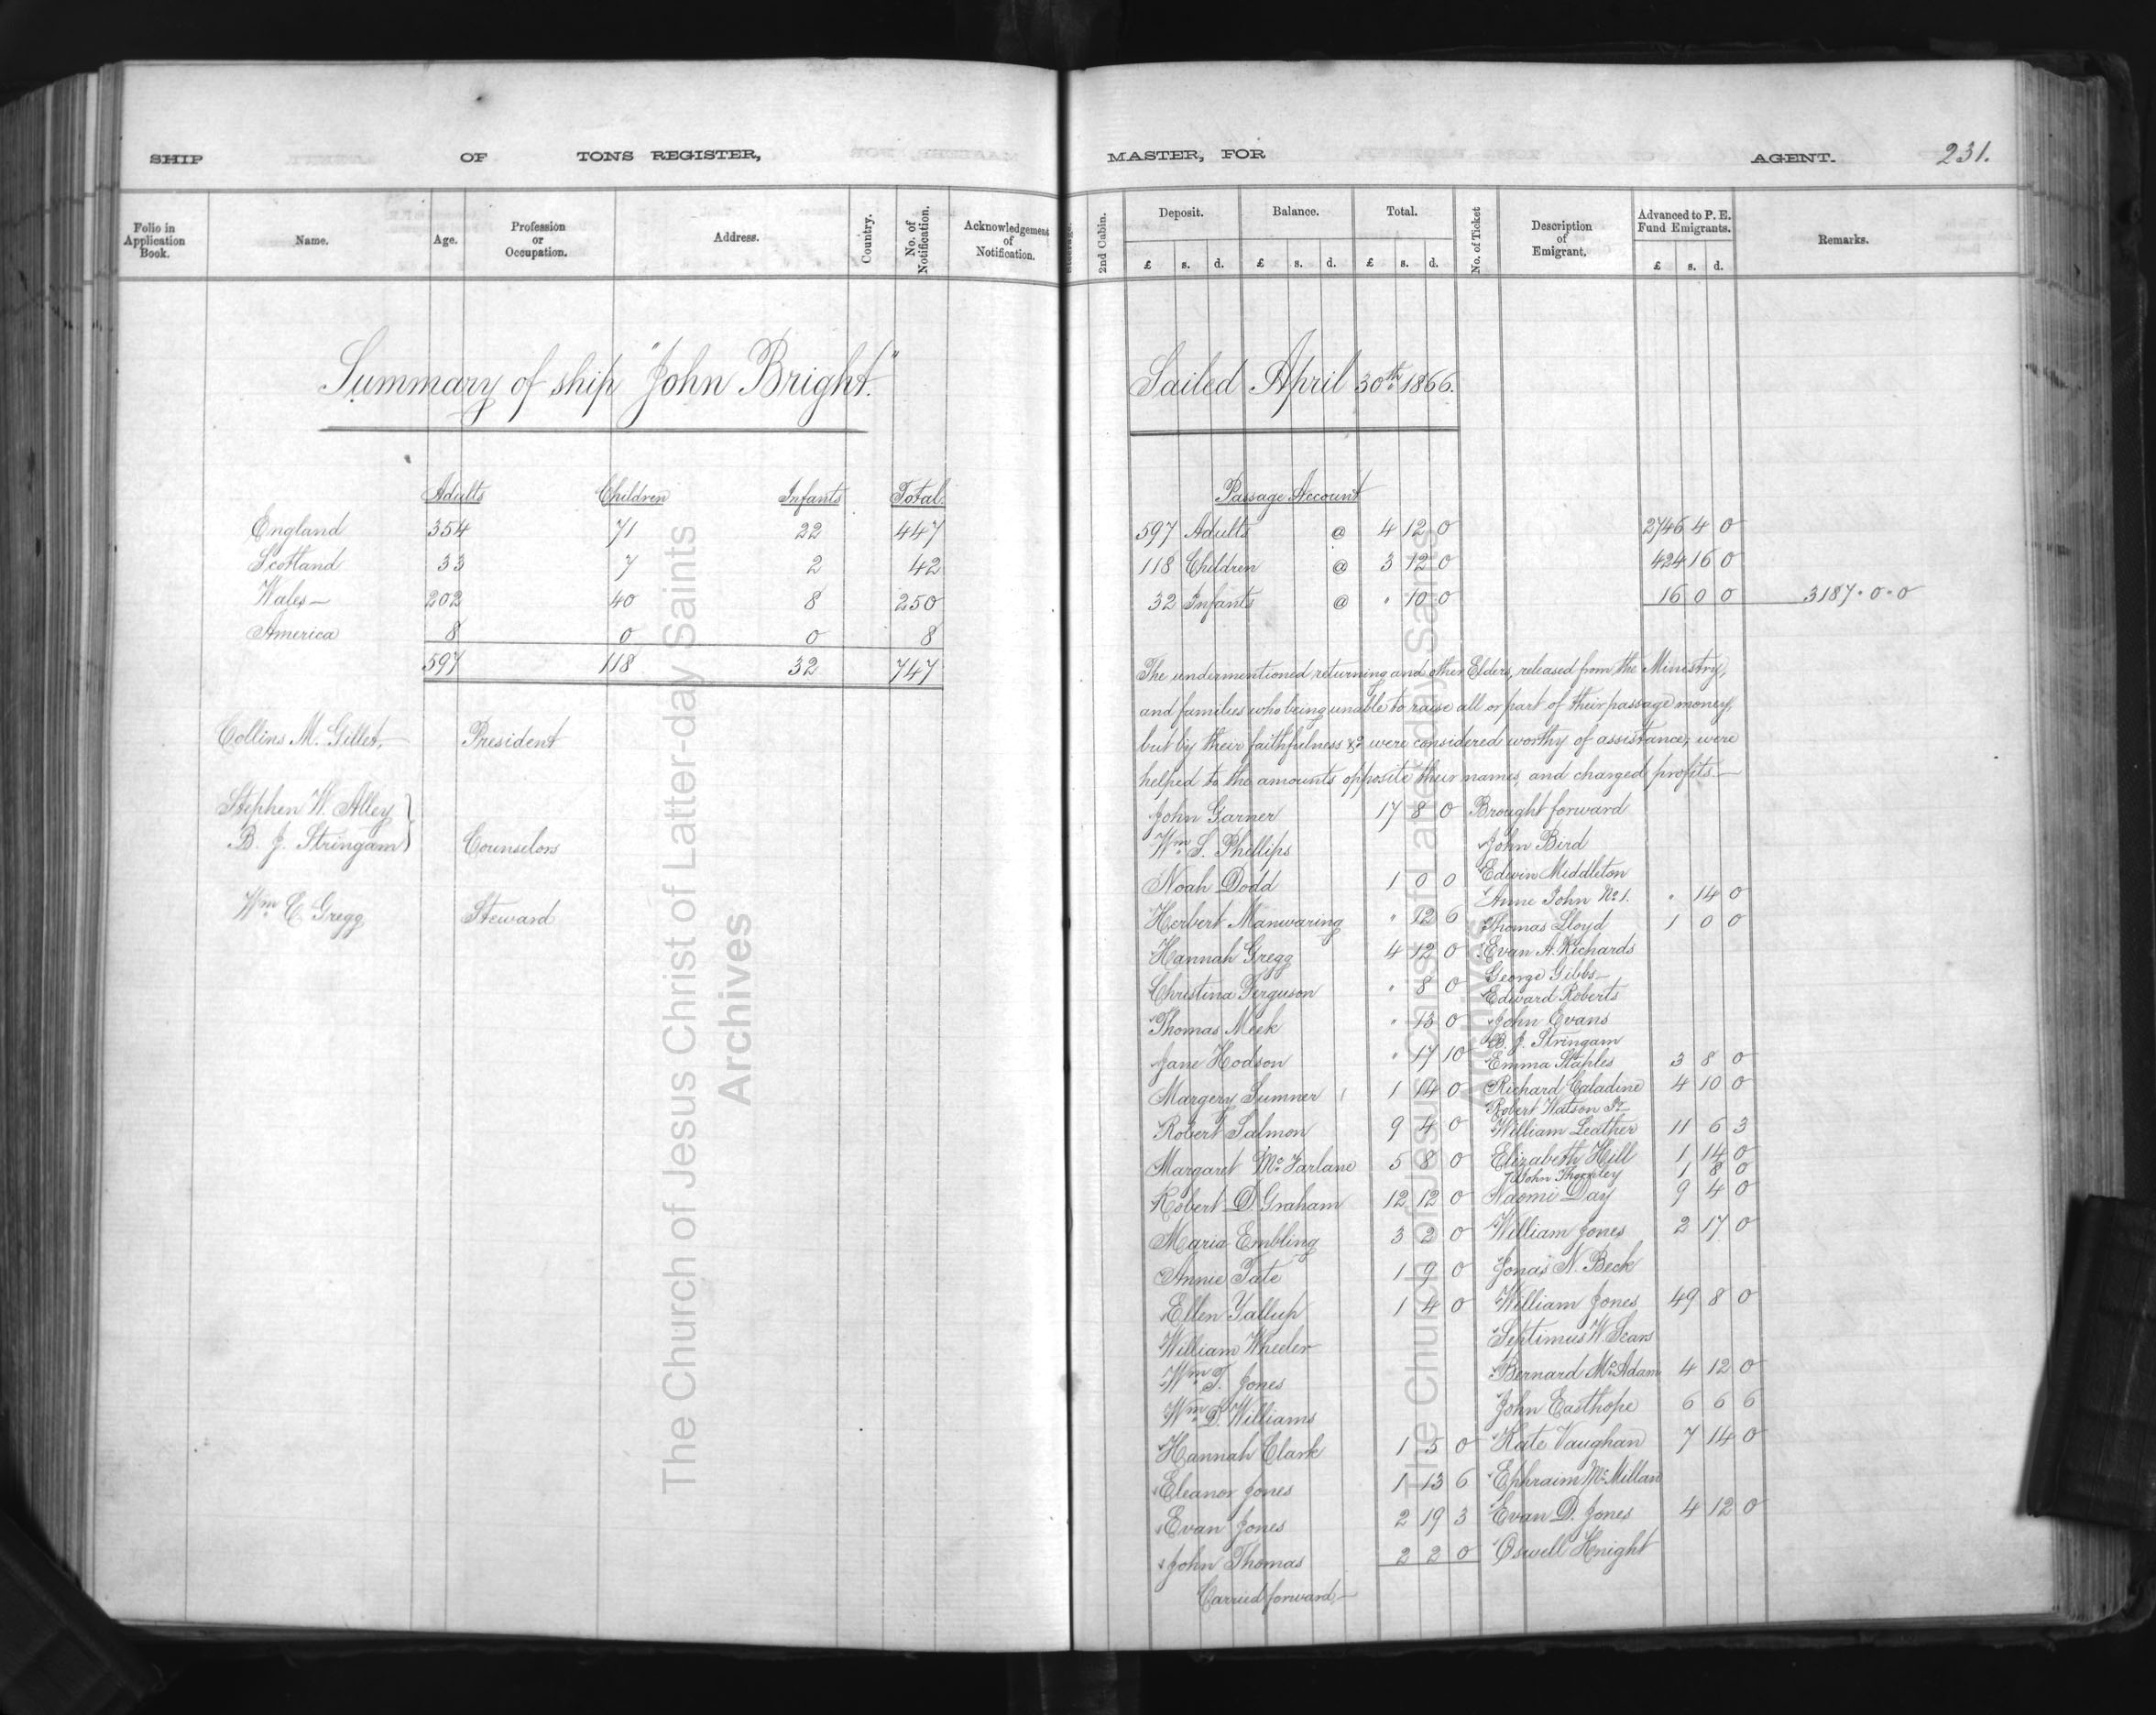 SHIP OF TONS REGISTER,
Folio in Application Book. Name. Age. Profession or Occupation. Address. Country. No. of Notification. Acknowledgement of Notification.
Summary of ship "John Bright."
Adults Children Infants Total
England 354 71 22 447
Scotland 33 7 2 42
Wales— 202 40 8 250
America 8 0 0 8
597 118 32 747
Collins M. Gillet,— President
Stephen W. Alley
B. J. Stringam } Counselors
Wm. C. Gregg Steward
The Church of Jesus Christ of Latter-day Saints
Archives
MASTER, FOR AGENT. 231.
Steerage. 2nd Cabin. Deposit. £ s. d. Balance. £ s. d. Total. £ s. d. No. of Ticket Description of Emigrant. Advanced to P. E. Fund Emigrants. £ s. d. Remarks.
Sailed April 30th 1866.
Passage Account
597 Adults @ 4 12 0 2746 4 0
118 Children @ 3 12 0 424 16 0
32 Infants @ " 10 0 16 0 0 3187 " 0 " 0
The undermentioned returning and other Elders, released from the Ministry,
and families who being unable to raise all or part of their passage money,
but by their faithfulness &c were considered worthy of assistance, were
helped to the amounts opposite their names, and charged profits—
John Garner 17 8 0
Wm. S. Phillips
Noah Dodd 1 0 0
Herbert Manwaring " 12 6
Hannah Gregg 4 12 0
Christina Ferguson " 8 0
Thomas Meek " 13 0
Jane Hodson " 17 10
Margery Sumner 1 14 0
Robert Salmon 9 4 0
Margaret McFarlane 5 8 0
Robert D. Graham 12 12 0
Maria Embling 3 2 0
Annie Tate 1 9 0
Ellen Gallup 1 4 0
William Wheeler
Wm. T. Jones
Wm. D. Williams
Hannah Clark 1 5 0
Eleanor Jones 1 13 6
Evan Jones 2 19 3
John Thomas 2 2 0
Carried forward,—
Brought forward
John Bird
Edwin Middleton
Anne John No 1. " 14 0
Thomas Lloyd 1 0 0
Evan A. Richards
George Gibbs—
Edward Roberts
John Evans
B. J. Stringam
Emma Staples 3 8 0
Richard Caladine 4 10 0
Robert Watson Jr—
William Leather 11 6 3
Elizabeth Hill 1 14 0
John Thornley 1 8 0
Naomi Day 9 4 0
William Jones 2 17 0
Jonas N. Beck
William Jones 49 8 0
Septimus W. Sears
Bernard McAdam 4 12 0
John Easthope 6 6 6
Kate Vaughan 7 14 0
Ephraim McMillan
Evan D. Jones 4 12 0
Oswell Knight
The Church of Jesus Christ of Latter-day Saints
Archives